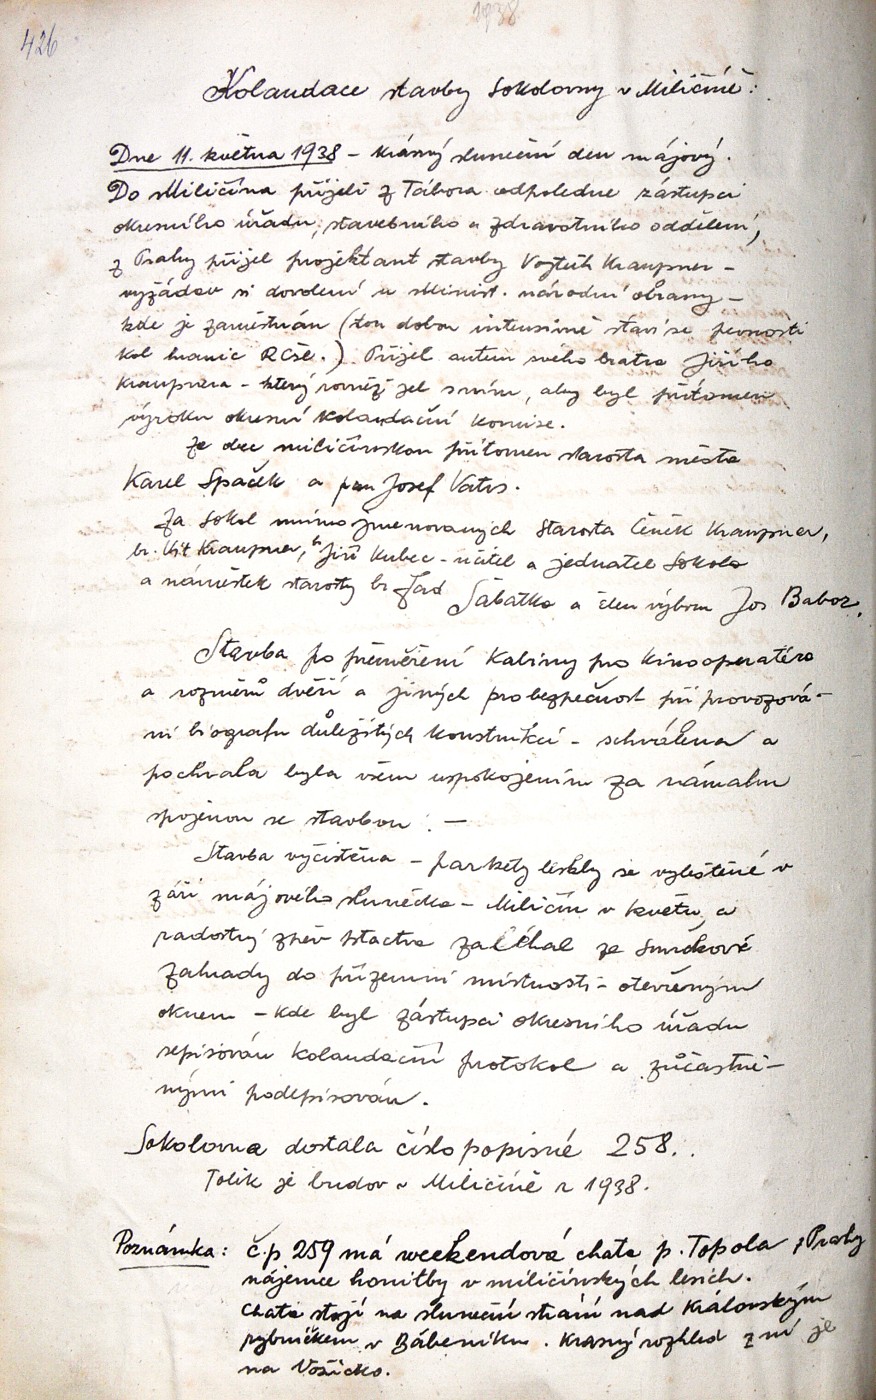 1938
426
Kolaudace stavby Sokolovny v Miličíně:
Dne 11. května 1938 – krásný sluneční den májový.
Do Miličína přijeli z Tábora odpoledne zástupci
okresního úřadu, stavebního a zdravotního oddělení,
z Prahy přijel projektant stavby Vojtěch Kraupner –
vyžádav si dovolení u Minist. národní obrany –
kde je zaměstnán (tou dobou intensivně staví se pevnosti
kol hranic RČSl.) Přijel autem svého bratra Jiřího
Kraupnera – který rovněž jel s ním, aby byl přítomen
výroku okresní kolaudační komise.
Za obec miličínskou přítomen starosta města
Karel Spaček a pan Josef Vatrs.
Za Sokol mimo jmenovaných starosta Čeněk Kraupner,
br. Vít Kraupner, br Jiří Kubec – učitel a jednatel Sokola
a náměstek starosty br Sabatka a člen výboru Jos Babor.
Stavba po přeměření kabiny pro kinooperatéra
a rozměrů dvěří a jiných pro bezpečnost při provozová-
ní biografu důležitých konstrukcí – schválena a
pochvala byla všem uspokojením za námahu
spojenou se stavbou. –
Stavba vyčistěna – parkety leskly se vyleštěné v
září májového slunéčka – Miličín v květu, a
radostný zpěv ptactva zaléhal ze Smrčkové
zahrady do přízemní místnosti – otevřeným
oknem – kde byl zástupci okresního úřadu
sepisován kolaudační protokol a zůčastně-
nými podepisován.
Sokolovna dostala číslo popisné 258.
Tolik je budov v Miličíně r 1938.
Poznámka: č.p 259 má weekendová chata p. Topola z Prahy
nájemce honitby v miličínských lesích.
Chata stojí na sluneční stráni nad Královským
rybníčkem v Bábeníku. Krásný rozhled z ní je
na Vožicko.